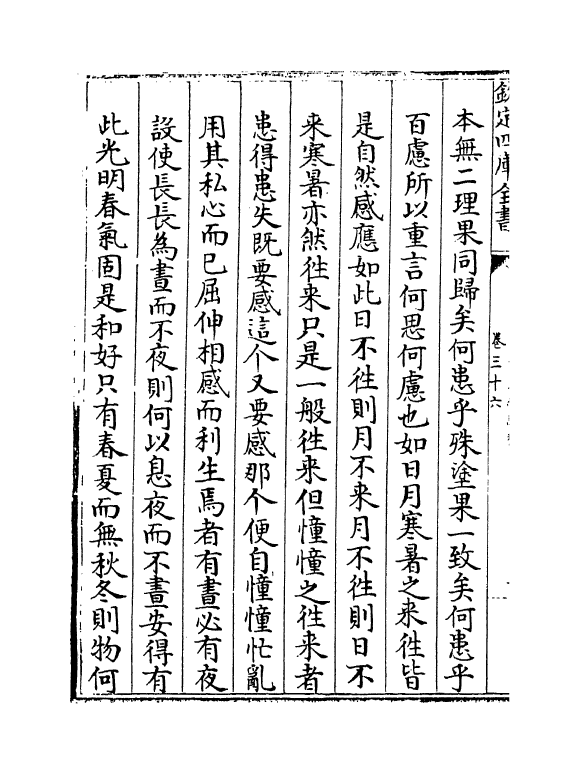 欽定四庫全書
卷三十六
本無二理果同歸矣何患乎殊塗果一致矣何患乎
百慮所以重言何思何慮也如日月寒暑之来往皆
是自然感應如此日不往則月不来月不往則日不
来寒暑亦然往来只是一般往来但憧憧之往来者
患得患失既要感這个又要感那个便自憧憧忙亂
用其私心而已屈伸相感而利生焉者有晝必有夜
設使長長為晝而不夜則何以息夜而不晝安得有
此光明春氣固是和好只有春夏而無秋冬則物何